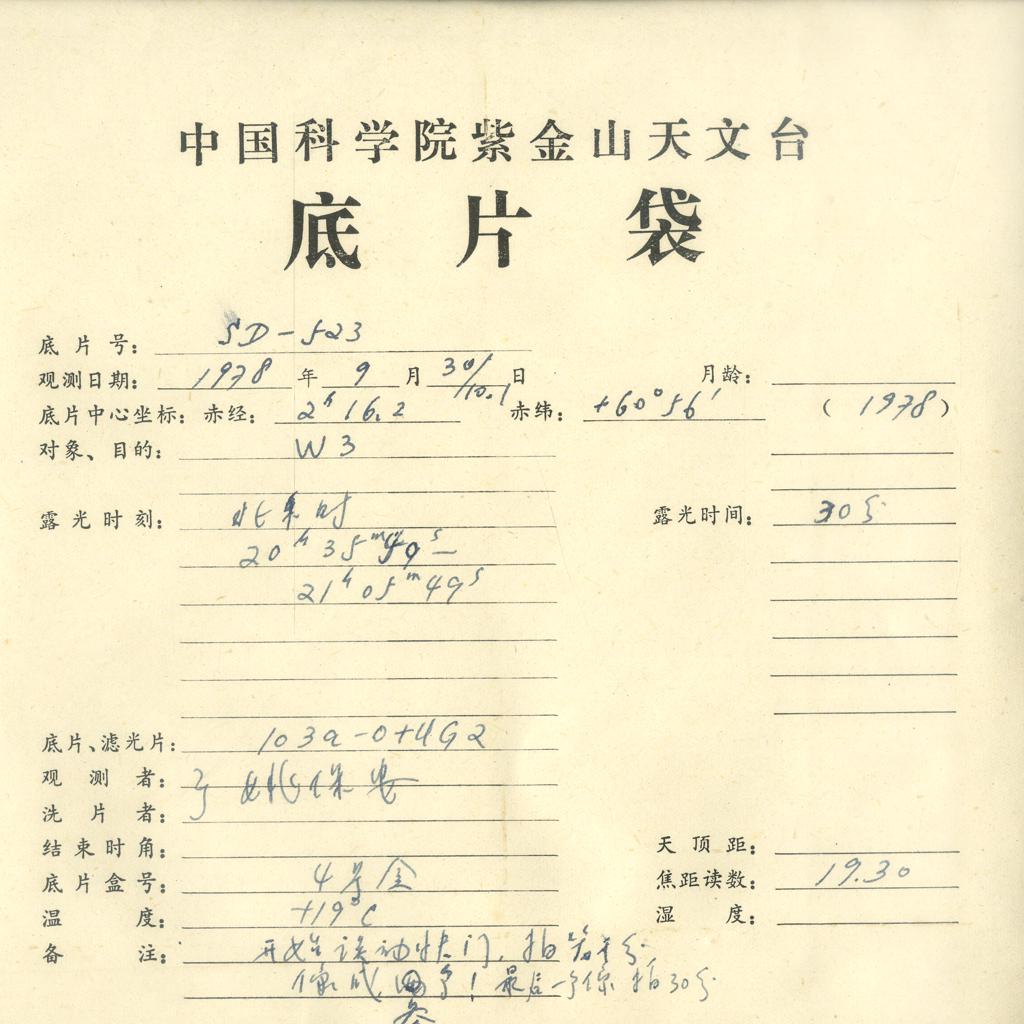 中国科学院紫金山天文台
底片袋
底片号: SD-523
观测日期: 1978 年 9 月 30/10.1 日 月龄:
底片中心坐标: 赤经: 2h 16.2 赤纬: +60°56′ (1978)
对象、目的: W3
露光时刻: 北京时 露光时间: 30分
20h 35m 49s —
21h 05m 49s
底片、滤光片: 103a-O+UG2
观测者: 姚保安
洗片者:
结束时角: 天顶距:
底片盒号: 4号盒 焦距读数: 19.30
温度: +19°C 湿度:
备注: 开始误动快门, 拍
像成 四个! 最后一个像 拍30分